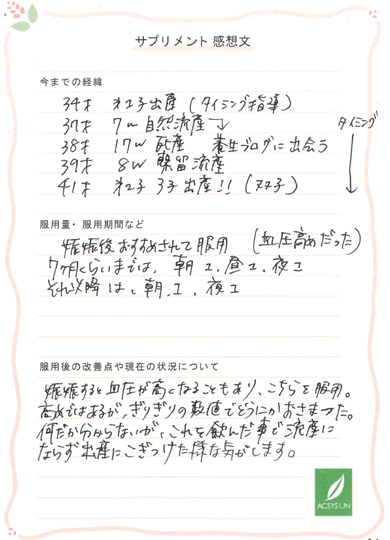 サプリメント 感想文
今までの経緯
34才 第1子出産 (タイミング指導)
37才 7w 自然流産
タイミング
38才 17w 死産 養生ブログに出会う
39才 8w 稽留流産
41才 第2子 3子 出産!! (双子)
服用量・服用期間など
妊娠後おすすめされて服用 (血圧高めだった)
7ヶ月くらいまでは、朝1、昼1、夜1
それ以降は、朝1、夜1
服用後の改善点や現在の状況について
妊娠すると血圧が高くなることもあり、こちらを服用。
高めではあるが、ぎりぎりの数値でどうにかおさまった。
何だか分からないが、これを飲んだ事で流産に
ならず出産にこぎつけた様な気がします。
ACSYSUN